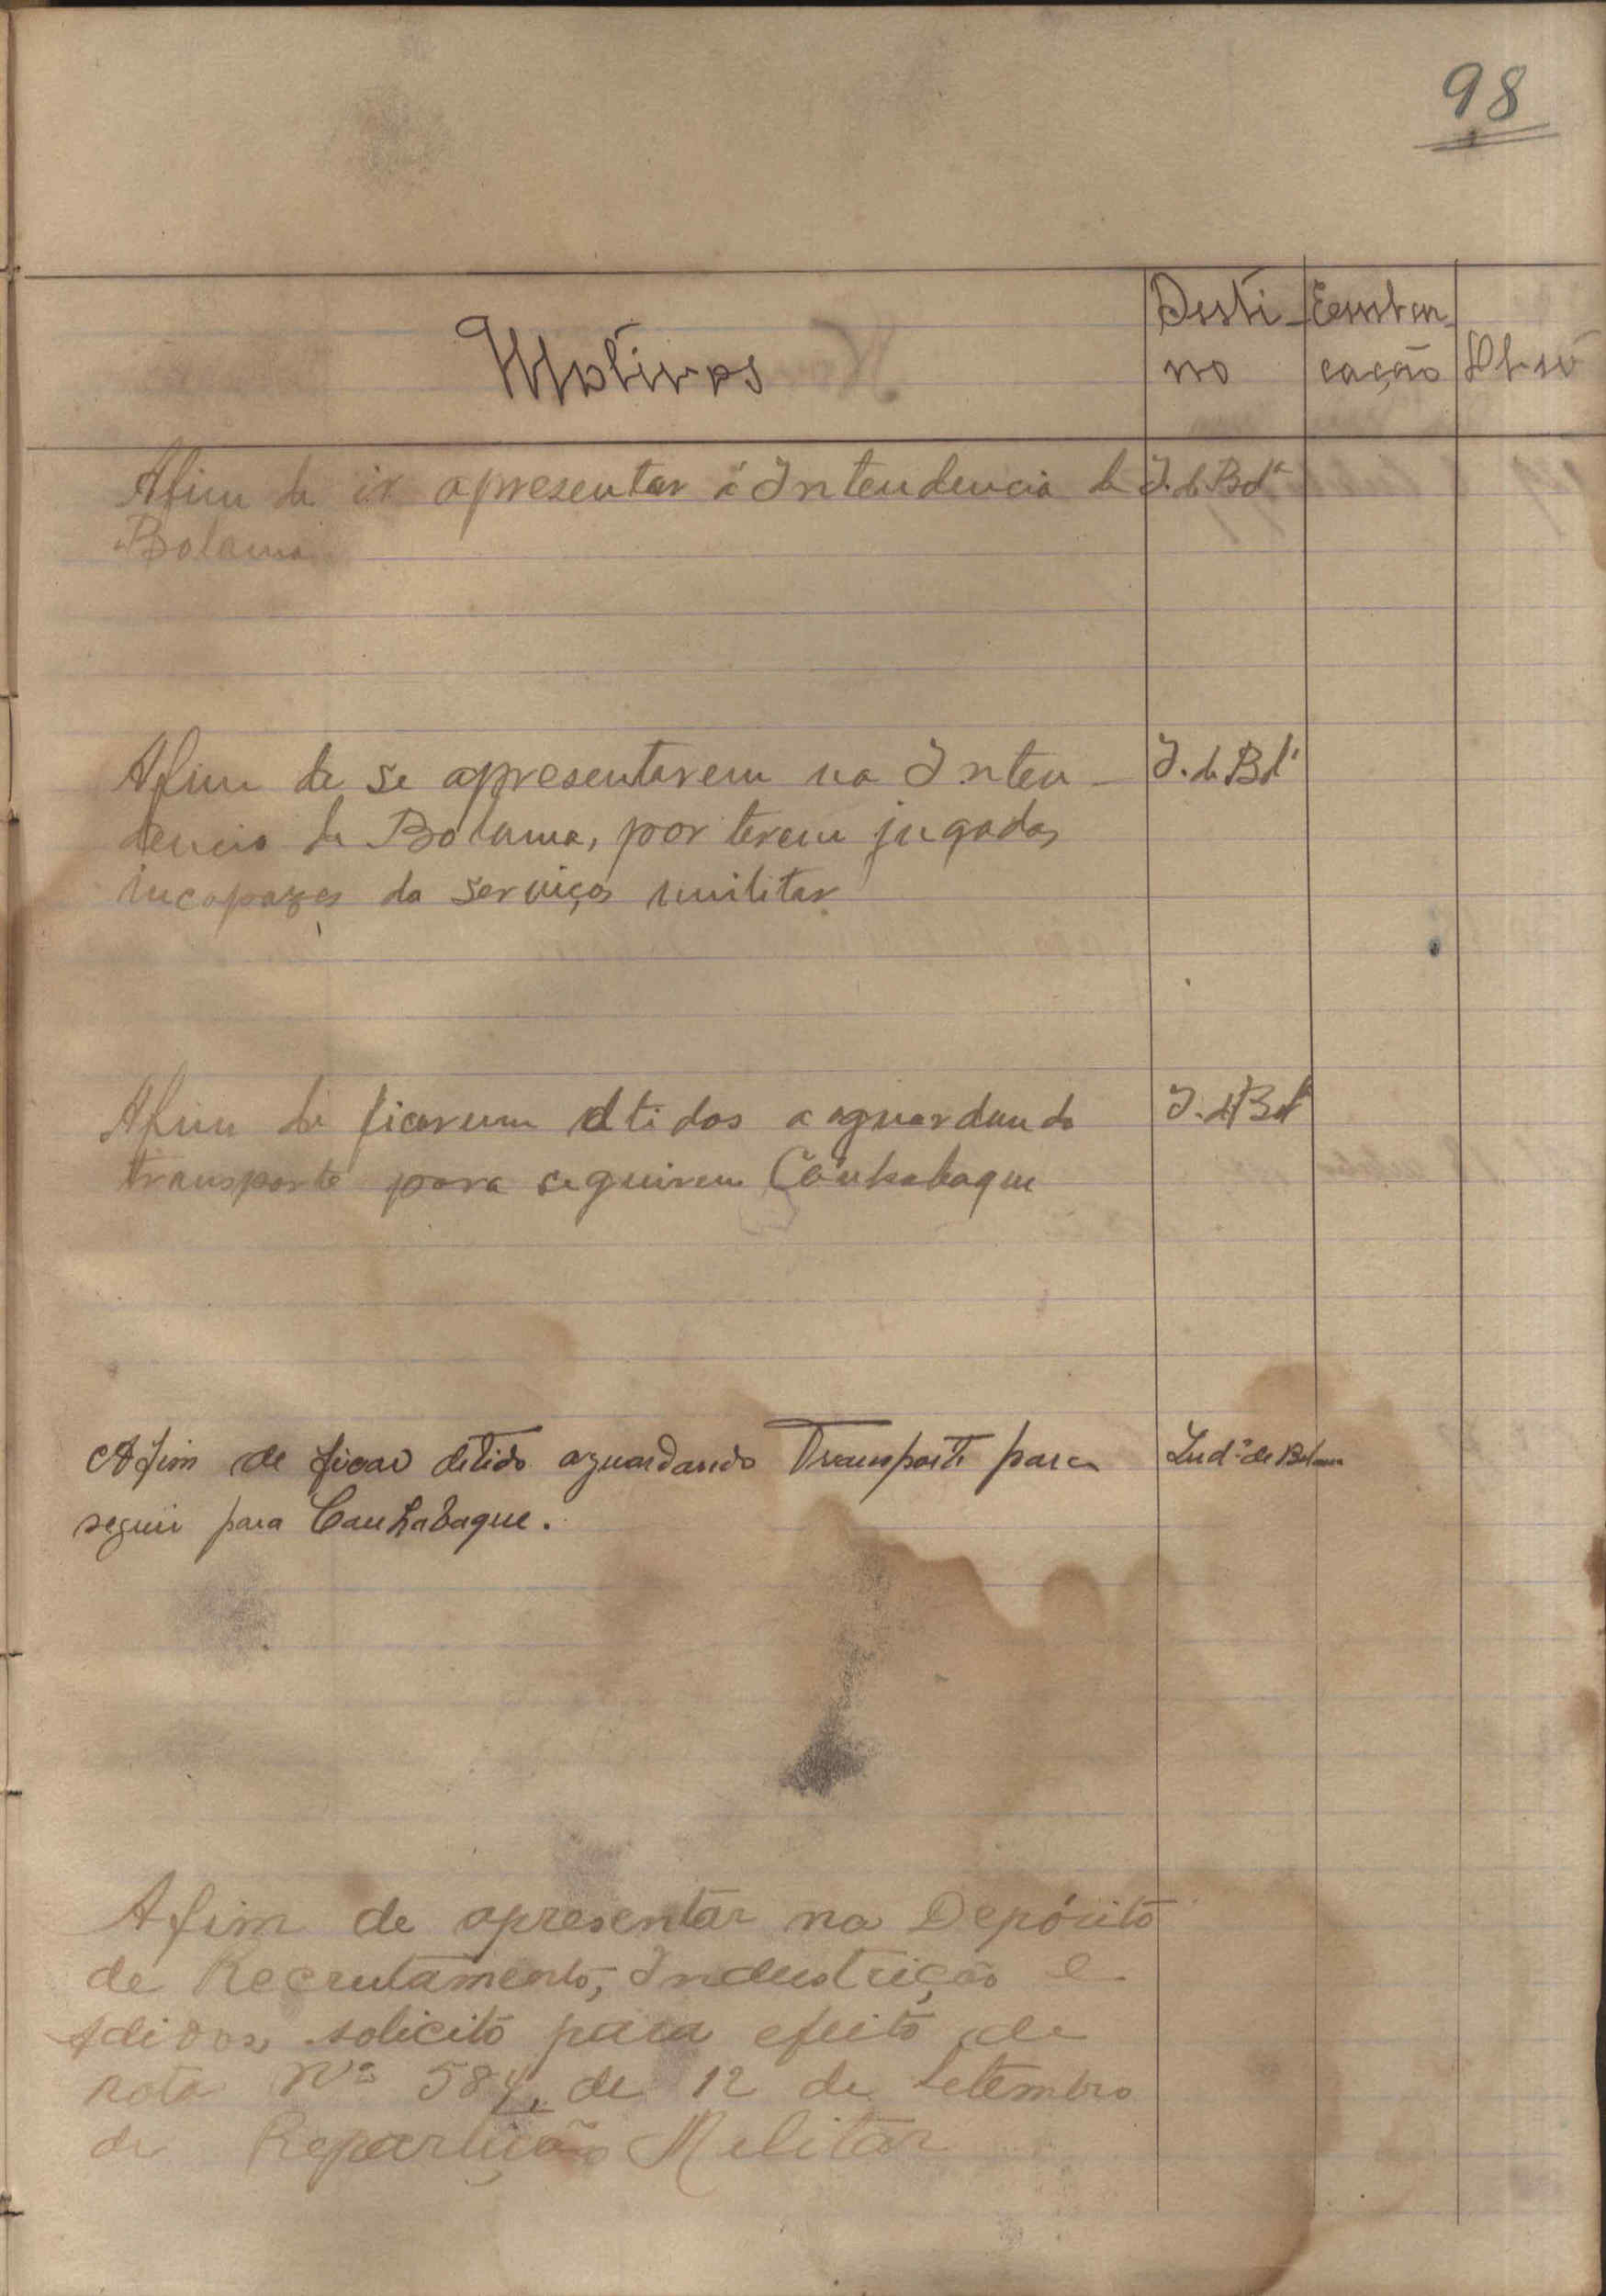 98
Motivos
Desti-
no
Embar-
cação
Obsv
Afim de ir apresentar á Intendencia de
I. de Bdª
Bolama
Afim de se apresentarem na Inten-
I. de Bdª
dencia de Bolama, por terem jugados
incapazes do serviços militar
Afim de ficarem dtidos a aguardando
I. de Bdª
transporte para seguirem Canhabaque
Afim de ficar detido aguardando Transporte para
Indª de Bolama
seguir para Canhabaque.
Afim de apresentar na Depósito
de Recrutamento, Industrição e
Adidos, solicito para efeito de
nota Nº 584, de 12 de Setembro
de Repartição Melitar